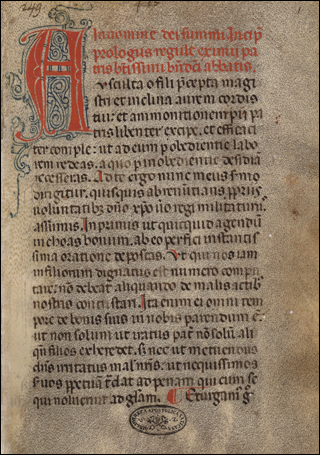 249
In nomine dei summi. Incip̄
prologus regule eximii pa
tris b̄tissimi b̄ndicti abbatis.
Ausculta o fili p̄cepta magi
stri et inclina aurem cordis
tui: et ammonitionem pii pa
tris libenter excipe, et efficaci
ter comple: ut ad eum p obedientie labo
rem redeas, a quo p inobedientie desidia
recesseras. Ad te ergo nunc meus s̄mo
dirigitur, quisquis abrenuntians p̄priis
voluntatibꝫ dn̄o xp̄o vero regi militaturus
assumis. In primis ut quicquid agendum
inchoas bonum, ab eo perfici instantis
sima oratione deposcas. Ut qui nos iam
in filiorum dignatus est numero compu
tare: nō debeat aliquando de malis actibꝫ
nostris contristari. Ita enim ei omni tem
pore de bonis suis in nobis parendum ē:
ut non solum ut iratus pater nō solū ali
qn̄ filios exheredet. s; nec ut metuendus
dn̄s irritatus malis nr̄is: ut nequissimos
servos ppetuam t̄dat ad penam qui eum se
qui noluerint ad gl̄am. Exurgam̄ g̊